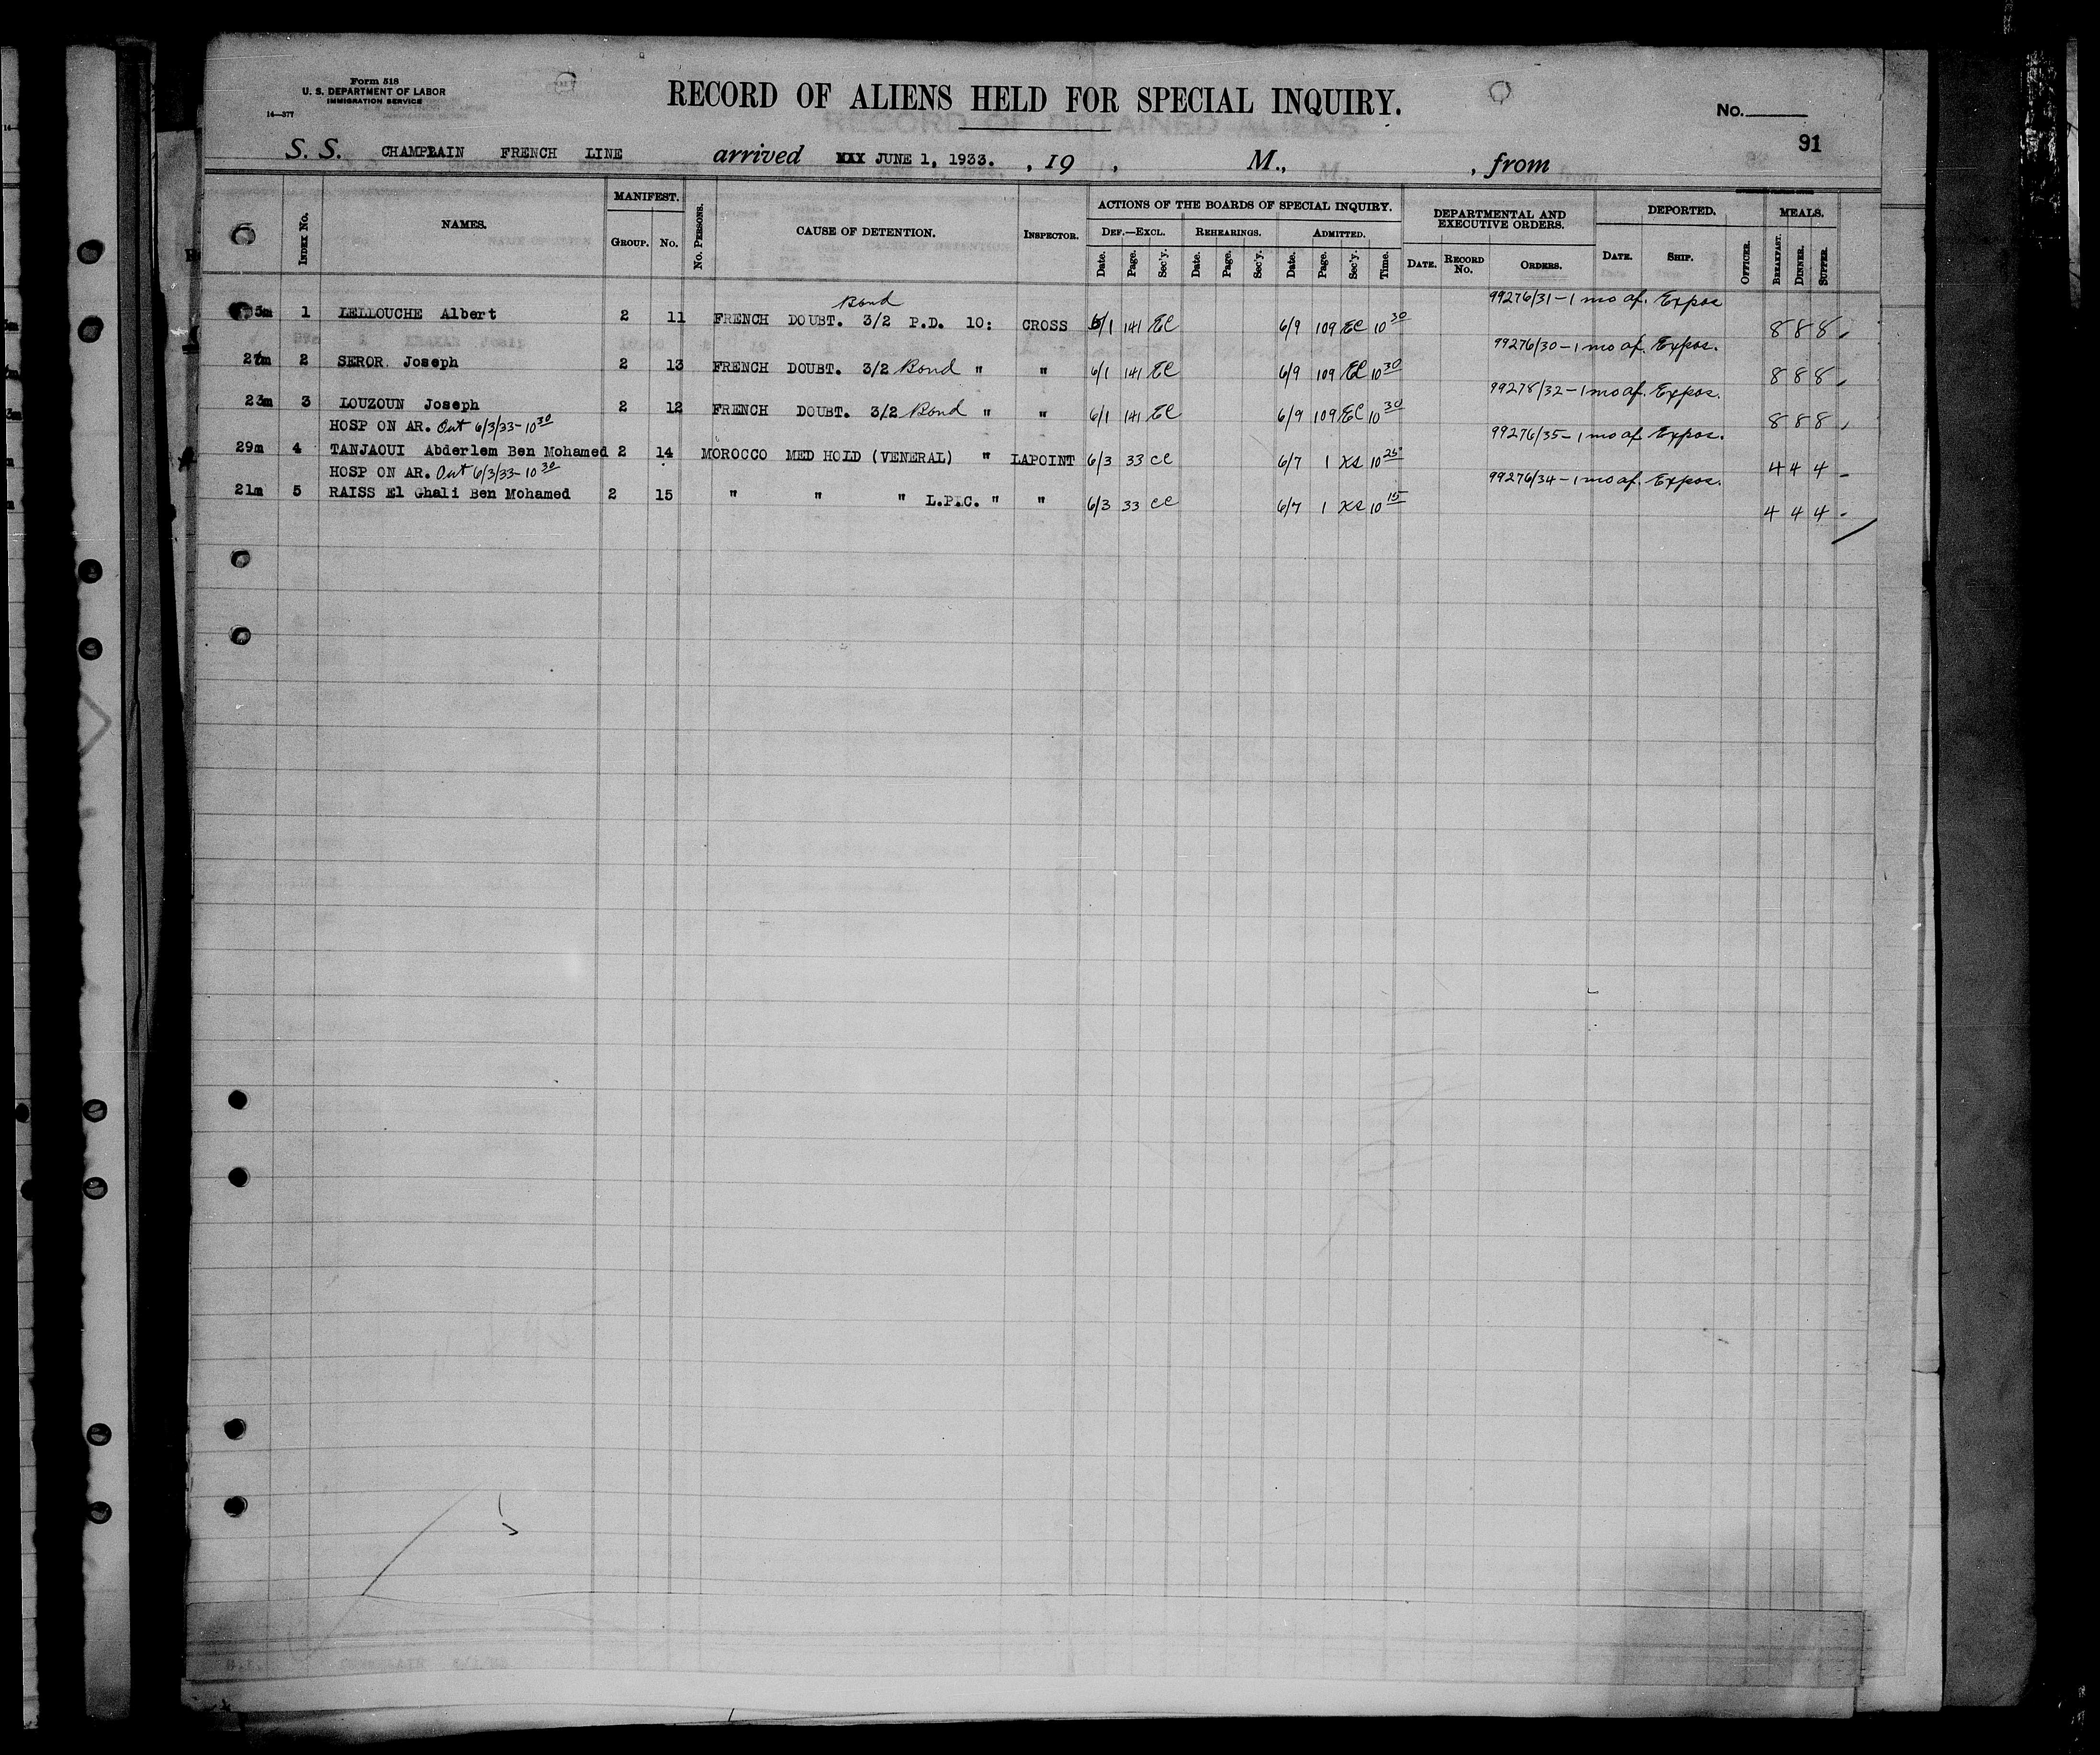 Form 518
U. S. DEPARTMENT OF LABOR
IMMIGRATION SERVICE
14—377
RECORD OF ALIENS HELD FOR SPECIAL INQUIRY.
No.
91
S. S. CHAMPLAIN FRENCH LINE arrived JUNE 1, 1933. , 19 , M., , from
INDEX No. NAMES. MANIFEST. GROUP. No. No. PERSONS. CAUSE OF DETENTION. INSPECTOR. ACTIONS OF THE BOARDS OF SPECIAL INQUIRY. DEF.—EXCL. Date. Page. Sec'y. REHEARINGS. Date. Page. Sec'y. ADMITTED. Date. Page. Sec'y. Time. DEPARTMENTAL AND EXECUTIVE ORDERS. DATE. RECORD No. ORDERS. DEPORTED. DATE. SHIP. OFFICER. MEALS. BREAKFAST. DINNER. SUPPER.
Bond 99276/31-1 mo af. Expos
5m 1 LELLOUCHE Albert 2 11 FRENCH DOUBT. 3/2 P.D. 10: CROSS 6/1 141 EC 6/9 109 EC 10 30 8 8 8
99276/30-1 mo af. Expos.
27m 2 SEROR Joseph 2 13 FRENCH DOUBT. 3/2 Bond " " 6/1 141 EC 6/9 109 EC 10 30 8 8 8
99278/32-1 mo af. Expos.
23m 3 LOUZOUN Joseph 2 12 FRENCH DOUBT. 3/2 Bond " " 6/1 141 EC 6/9 109 EC 10 30 8 8 8
HOSP ON AR. Out 6/3/33-10 30 99276/35-1 mo af Expos.
29m 4 TANJAOUI Abderlem Ben Mohamed 2 14 MOROCCO MED HOLD (VENERAL) " LAPOINT 6/3 33 CC 6/7 1 KS 10 25 4 4 4
HOSP ON AR. Out 6/3/33-10 30 99276/34-1 mo af. Expos.
21m 5 RAISS El Ghali Ben Mohamed 2 15 " " " L.P.C. " " 6/3 33 CC 6/7 1 KS 10 15 4 4 4